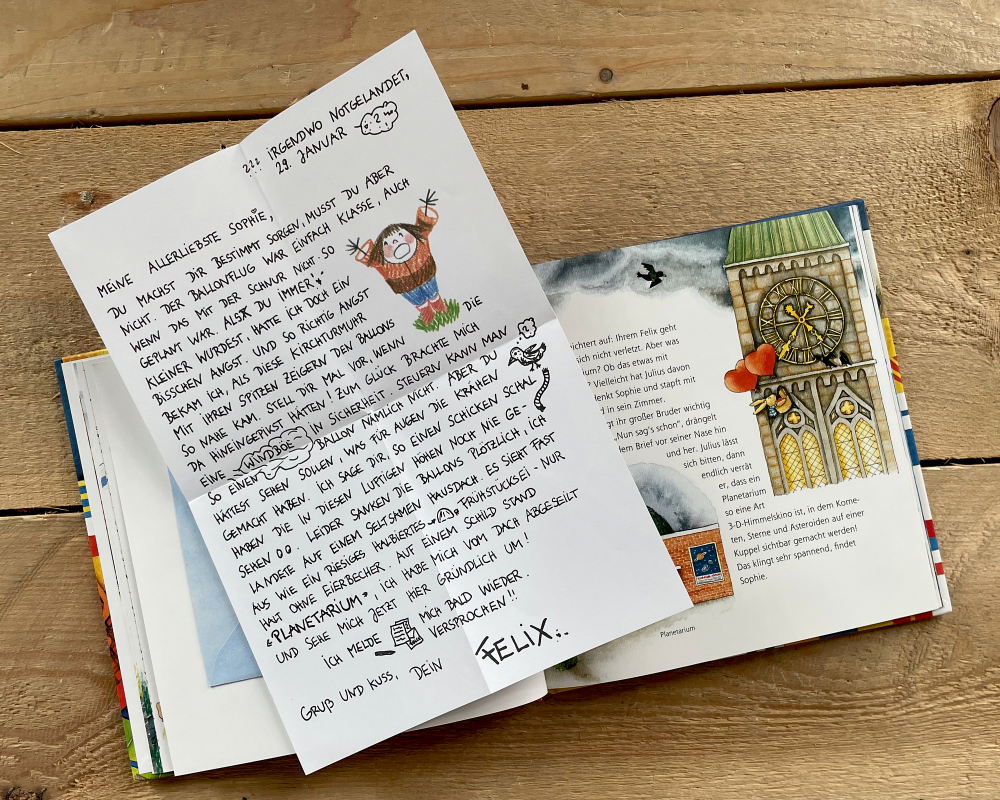 ??? IRGENDWO NOTGELANDET,
29. JANUAR
MEINE ALLERLIEBSTE SOPHIE,
DU MACHST DIR BESTIMMT SORGEN, MUSST DU ABER
NICHT. DER BALLONFLUG WAR EINFACH KLASSE, AUCH
WENN DAS MIT DER SCHNUR NICHT SO
GEPLANT WAR. ALS DU IMMER
KLEINER WURDEST, HATTE ICH DOCH EIN
BISSCHEN ANGST. UND SO RICHTIG ANGST
BEKAM ICH, ALS DIESE KIRCHTURMUHR
MIT IHREN SPITZEN ZEIGERN DEN BALLONS
SO NAHE KAM. STELL DIR MAL VOR, WENN DIE
DA HINEINGEPIKST HÄTTEN! ZUM GLÜCK BRACHTE MICH
EINE WINDBÖE IN SICHERHEIT. STEUERN KANN MAN
SO EINEN BALLON NÄMLICH NICHT. ABER DU
HÄTTEST SEHEN SOLLEN, WAS FÜR AUGEN DIE KRÄHEN
GEMACHT HABEN. ICH SAGE DIR, SO EINEN SCHICKEN SCHAL
HABEN DIE IN DIESEN LUFTIGEN HÖHEN NOCH NIE GE-
SEHEN. LEIDER SANKEN DIE BALLONS PLÖTZLICH, ICH
LANDETE AUF EINEM SELTSAMEN HAUSDACH. ES SIEHT FAST
AUS WIE EIN RIESIGES HALBIERTES FRÜHSTÜCKSEI - NUR
HALT OHNE EIERBECHER. AUF EINEM SCHILD STAND
„PLANETARIUM“. ICH HABE MICH VOM DACH ABGESEILT
UND SEHE MICH JETZT HIER GRÜNDLICH UM!
ICH MELDE MICH BALD WIEDER.
VERSPROCHEN!!
GRUß UND KUSS, DEIN
FELIX
ichtert auf: Ihrem Felix geht
ich nicht verletzt. Aber was
ium? Ob das etwas mit
? Vielleicht hat Julius davon
denkt Sophie und stapft mit
d in sein Zimmer.
gt ihr großer Bruder wichtig
„Nun sag's schon", drängelt
dem Brief vor seiner Nase hin
und her. Julius lässt
sich bitten, dann
endlich verrät
er, dass ein
Planetarium
so eine Art
3-D-Himmelskino ist, in dem Kome-
ten, Sterne und Asteroiden auf einer
Kuppel sichtbar gemacht werden!
Das klingt sehr spannend, findet
Sophie.
Planetarium